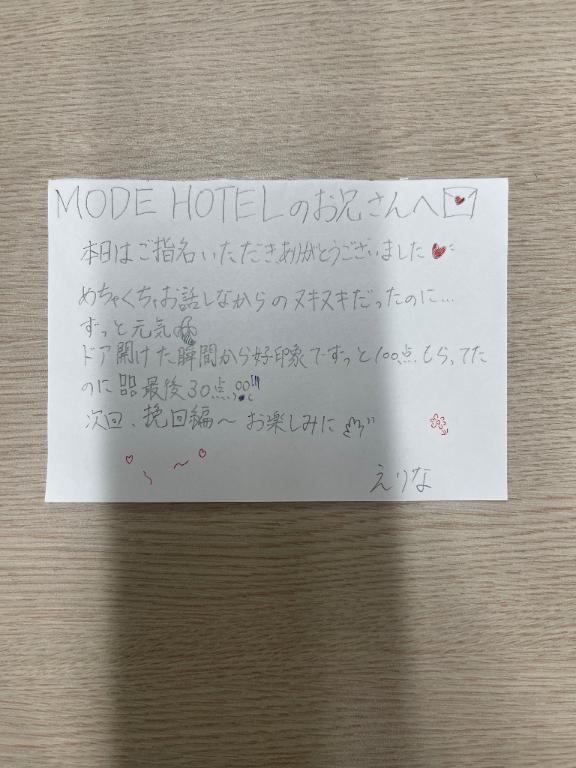 MODE HOTELのお兄さんへ
本日はご指名いただきありがとうございました
めちゃくちゃお話しながらのヌキヌキだったのに…
ずっと元気
ドア開けた瞬間から好印象でずっと100点もらってた
のに 最後30点 !!!
次回、挽回編〜 お楽しみに
えりな